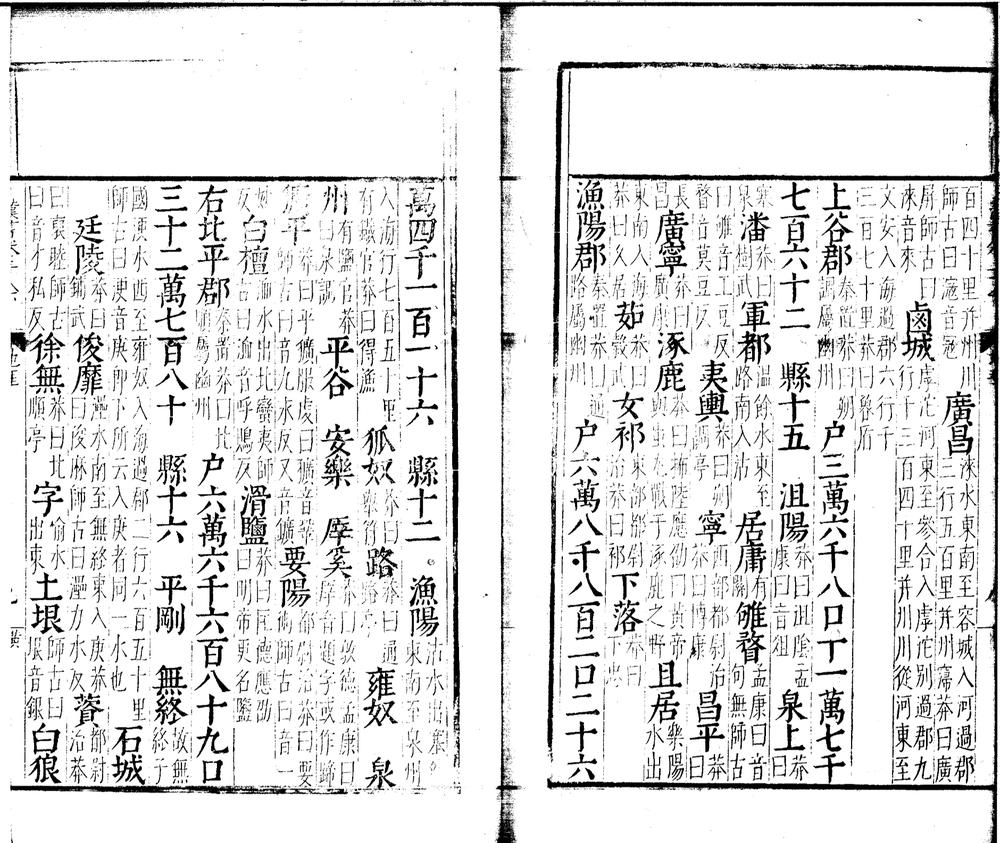 百四十里并州川
師古曰㴾音寇 廣昌 淶水東南至容城入河過郡
三行五百里并州寖莽曰廣
屏師古曰
淶音來 鹵城 虖沱河東至參合入虖沱別過郡九
行千三百四十里并州川從河東至
文安入海過郡六行千
三百七十里莽曰魯盾
上谷郡 秦置莽曰朔
調屬幽州 户三萬六千八口十一萬七千
七百六十二 縣十五 沮陽 莽曰沮陰孟
康曰音俎 泉上 莽曰
塞
泉 潘 莽曰
樹武 軍都 溫餘水東至
路南入沽 居庸 有
關 雊瞀 孟康曰音
句無師古
曰雊音工豆反
瞀音莫豆反 夷輿 莽曰朔
調亭 寧 西部都尉治
莽曰博康 昌平 莽曰
長昌 廣寧 莽曰
廣康 涿鹿 莽曰抪陸應劭曰黃帝
與蚩尤戰于涿鹿之野 且居 樂陽
水出
東南入海莽
莽曰久居 茹 莽曰
穀武 女祁 東部都尉
治莽曰祁 下落 莽曰
下忠
漁陽郡 秦置莽曰通
路屬幽州 户六萬八千八百二口二十六
萬四千一百一十六 縣十二 漁陽 沽水出塞外
東南至泉州
入海行七百五十里
有鐵官莽曰得漁 狐奴 莽曰
舉符 路 莽曰通
路亭 雍奴 泉
州 有鹽官莽
曰泉調 平谷 安樂 厗奚 莽曰敦德孟康曰
厗音題字或作蹄
獷平 莽曰平獷服虔曰獷音鞏
師古曰音九永反又音鑛 要陽 都尉治莽曰要
術師古曰音一
妙反 白檀 洫水出北蠻夷師
古曰洫音呼鵙反 滑鹽 莽曰匡德應劭
曰明帝更名鹽
右北平郡 秦置莽曰北
順屬幽州 户六萬六千六百八十九口
三十二萬七百八十 縣十六 平剛 無終 故無
終子
國浭水西至雍奴入海過郡二行六百五十里
師古曰浭音庚即下所云入庚者同一水也 石城
廷陵 莽曰
鋪武 俊靡 灅水南至無終東入庚莽
曰俊麻師古曰灅力水反 薋 都尉
治莽
曰裒睦師古
曰音才私反 徐無 莽曰北
順亭 字 榆水
出東 土垠 師古曰
垠音銀 白狼